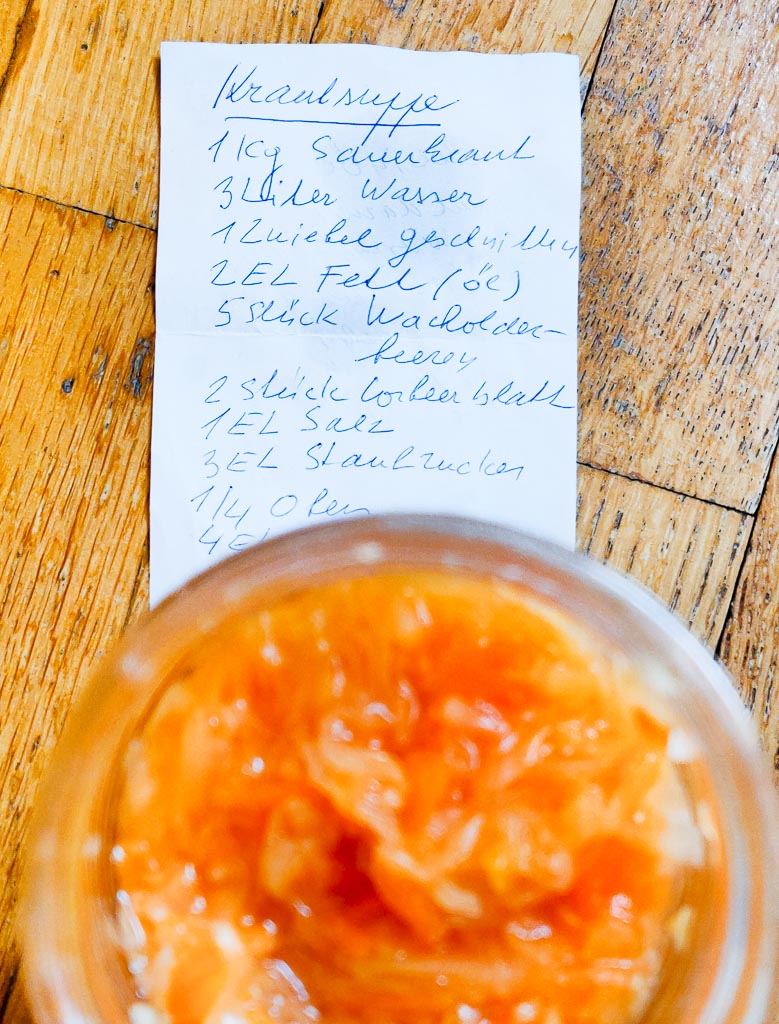 Krautsuppe
1 kg Sauerkraut
3 Liter Wasser
1 Zwiebel geschnitten
2 EL Fett (Öl)
5 Stück Wacholder-
beeren
2 Stück Lorbeerblatt
1 EL Salz
3 EL Staubzucker
1/4 Obers
4 EL